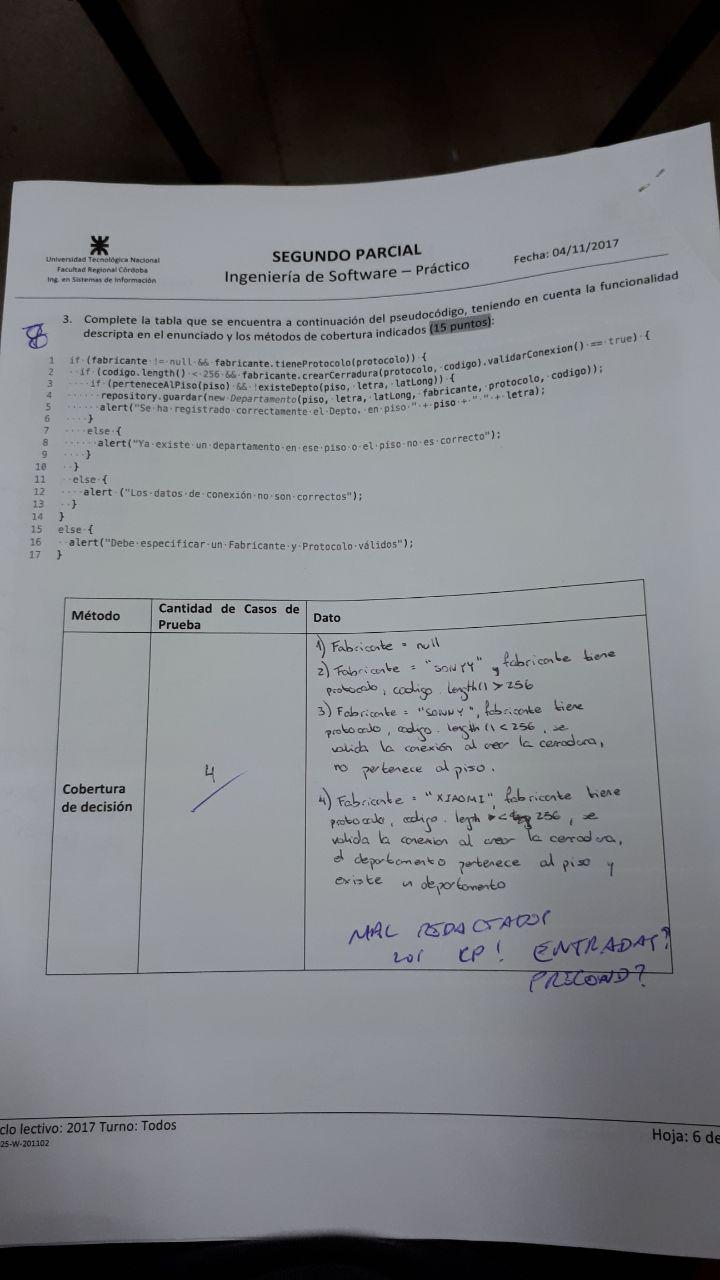 Universidad Tecnológica Nacional
Facultad Regional Córdoba
Ing. en Sistemas de Información
SEGUNDO PARCIAL
Ingeniería de Software – Práctico
Fecha: 04/11/2017
8
3. Complete la tabla que se encuentra a continuación del pseudocódigo, teniendo en cuenta la funcionalidad
descripta en el enunciado y los métodos de cobertura indicados (15 puntos):
1 if (fabricante != null && fabricante.tieneProtocolo(protocolo)) {
2 if (codigo.length() < 256 && fabricante.crearCerradura(protocolo, codigo).validarConexion() == true) {
3 if (perteneceAlPiso(piso) && !existeDepto(piso, letra, latLong)) {
4 repository.guardar(new Departamento(piso, letra, latLong, fabricante, protocolo, codigo));
5 alert("Se ha registrado correctamente el Depto. en piso " + piso + " " + letra);
6 }
7 else {
8 alert("Ya existe un departamento en ese piso o el piso no es correcto");
9 }
10 }
11 else {
12 alert ("Los datos de conexión no son correctos");
13 }
14 }
15 else {
16 alert("Debe especificar un Fabricante y Protocolo válidos");
17 }
Método
Cantidad de Casos de
Prueba
Dato
Cobertura
de decisión
4
1) Fabricante = null
2) Fabricante = "SONYY" y fabricante tiene
protocolo, codigo.length() > 256
3) Fabricante = "SONNY", fabricante tiene
protocolo, codigo.length() < 256, se
valida la conexión al crear la cerradura,
no pertenece al piso.
4) Fabricante = "XIAOMI", fabricante tiene
protocolo, codigo.legth < 256, se
valida la conexion al crear la cerradura,
el departamento pertenece al piso y
existe un departamento
MAL REDACTADOS
LOS CP! ENTRADAS?
PRECOND?
clo lectivo: 2017 Turno: Todos
25-W-201102
Hoja: 6 de